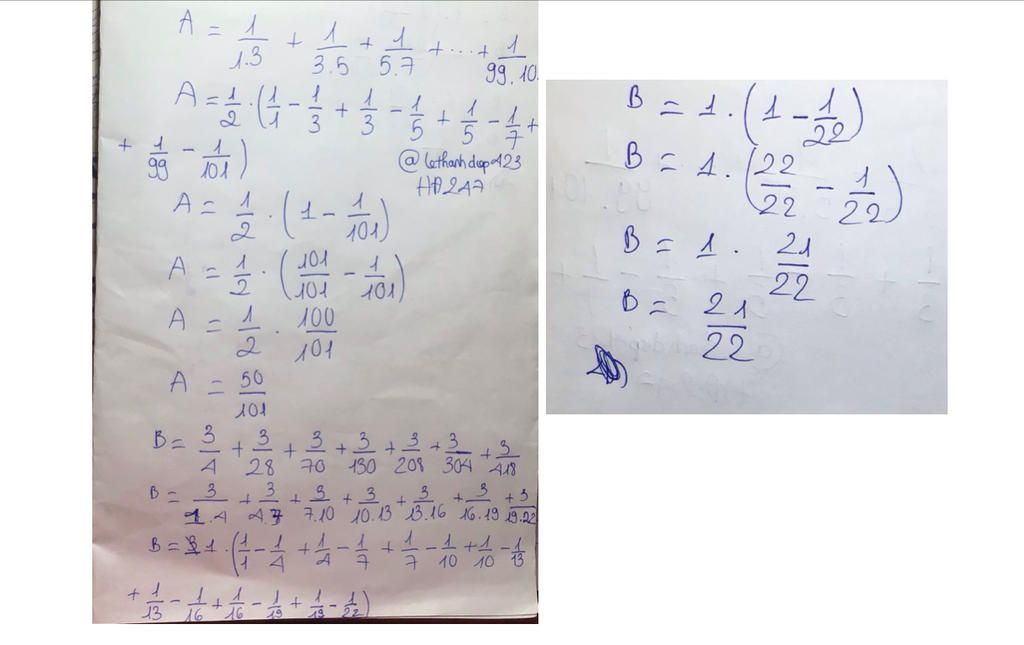 A = 1/1.3 + 1/3.5 + 1/5.7 + ... + 1/99.10
A = 1/2 . (1/1 - 1/3 + 1/3 - 1/5 + 1/5 - 1/7 +
+ 1/99 - 1/101)
@lethanhdiep123
A = 1/2 . (1 - 1/101)
A = 1/2 . (101/101 - 1/101)
A = 1/2 . 100/101
A = 50/101
B = 3/4 + 3/28 + 3/70 + 3/130 + 3/208 + 3/304 + 3/418
B = 3/1.4 + 3/4.7 + 3/7.10 + 3/10.13 + 3/13.16 + 3/16.19 + 3/19.22
B = 1 . (1/1 - 1/4 + 1/4 - 1/7 + 1/7 - 1/10 + 1/10 - 1/13
+ 1/13 - 1/16 + 1/16 - 1/19 + 1/19 - 1/22)
B = 1 . (1 - 1/22)
B = 1 . (22/22 - 1/22)
B = 1 . 21/22
B = 21/22